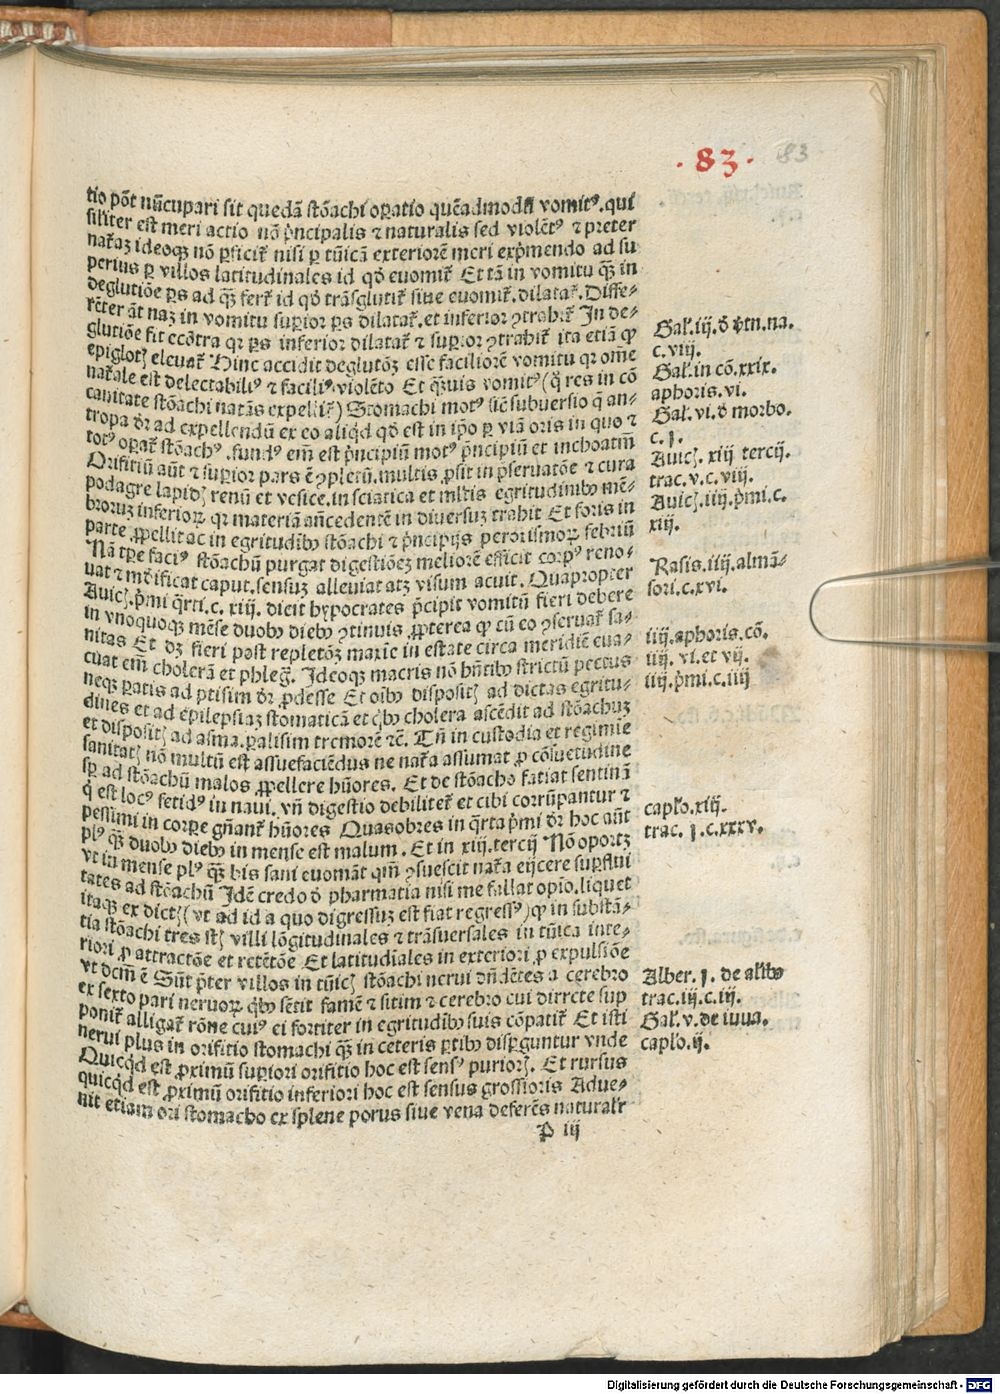 .83. 83
tio põt nũcupari sit quedã stõachi oꝑatio quẽadmodũ vomitꝰ. qui
siliter est meri actio nõ pͥncipalis ⁊ naturalis sed violẽtꝰ ⁊ preter
nat̃aʒ ideoqʒ nõ ꝑficit̃ nisi ꝑ tũicã exteriorẽ meri exp̃mendo ad su
perius ꝑ villos latitudinales id qđ euomit̃ Et tã in vomitu q̃ʒ in
deglutiõe ꝑs ad q̃ʒ fert̃ id qđ trãsglutit̃ siue euomit̃. dilatat̃. Diffe-
rẽter ãt naʒ in vomitu supior ꝑs dilatat̃. et inferior ꝯtrahit̃ In de-
glutiõe fit ecõtra qr ꝑs inferior dilatat̃ ⁊ supior ꝯtrahit̃ ita etiã ꝙ
epiglotꝭ eleuat̃ Hinc accidit deglutõʒ esse faciliorẽ vomitu qr ome
nat̃ale est delectabiliꝰ ⁊ faciliꝰ violẽto Et q̃ʒuis vomitꝰ (q̃ res in cõ
cauitate stõachi natãs expellit̃) Stomachi motꝰ sic̃ subuersio q̃ an-
tropa dr̃ ad expellendũ ex eo aliqd qđ est in ip̃o ꝑ viã oris in quo ⁊
totꝰ oꝑat̃ stõachꝰ. fundꝰ em̃ est pͥncipiũ motꝰ pͥncipiũ et inchoatm̃
Orifitiũ aũt ⁊ supior pars ẽ ꝯpletũ. multis ꝓsit in p̃seruatõe ⁊ cura
podagre lapidꝭ renũ et vesice. in sciatica et ml̃tis egritudinibꝰ mẽ-
broruʒ inferioꝝ qr materiã añcedentẽ in diuersuʒ trahit Et foris in
parte ꝓpellit ac in egritudĩbꝰ stõachi ⁊ pͥncipijs peroꝛismoꝝ febriũ
Nã tꝑe faciꝰ stõachũ purgat digestiõeʒ meliorẽ efficit corpꝰ reno-
uat ⁊ mũdificat caput. sensuʒ alleuiat atʒ visum acuit. Quapropter
Auicꝭ. p̃mi q̃rti. c. xiij. dicit hypocrates p̃cipit vomitũ fieri debere
in vnoquoqʒ mẽse duobꝰ diebꝰ ꝯtinuis ꝓpterea ꝙ cũ eo ꝯseruat̃ sa-
nitas Et dʒ fieri post repletõʒ maxie in estate circa meridiẽ eua-
cuat em̃ cholerã et phleg̃. Ideoqʒ macris nõ hñtibꝰ strictũ pectus
neqʒ ꝑatis ad ptisim dr̃ ꝓdesse Et oĩbꝰ dispositꝭ ad dictas egritu-
dines et ad epilepsiaʒ stomaticã et qͥbꝰ cholera ascẽdit ad stõachuʒ
et dispositꝭ ad asma. ꝑalisim tremorẽ ⁊c̃. Tñ in custodia et regimie
sanitatꝭ nõ multũ est assuefaciẽdus ne nat̃a assumat ꝓ cõsuetudine
sꝑ ad stõachũ malos ꝓpellere hũores. Et de stõacho fatiat sentinã
q̃ est locꝰ fetidꝰ in naui. vñ digestio debilitet̃ et cibi corrũpantur ⁊
pessimi in corꝑe gñant̃ hũores Quasobres in q̃rta p̃mi dr̃ hoc aũt
plꝰ q̃ʒ duobꝰ diebꝰ in mense est malum. Et in xiij. tercij Nõ oportʒ
vt in mense plꝰ q̃ʒ bis sani euomãt qm̃ ꝯsuescit nat̃a eijcere suꝑflui
tates ad stõachũ Idẽ credo đ pharmatia nisi me fallat opio. liquet
itaqʒ ex dictꝭ (vt ad id a quo digressuʒ est fiat regressꝰ) ꝙ in substã-
tia stõachi tres stꝭ villi lõgitudinales ⁊ trãsuersales in tũica inte-
riori ꝓ attractõe et retẽtõe Et latitudĩales in exteriori ꝓ expulsiõe
vt dcm̃ ẽ Sũt p̃ter villos in tũicꝭ stõachi nerui dñdẽtes a cerebro
ex sexto pari neruoꝝ qͥbꝰ sẽtit famẽ ⁊ sitim ⁊ cerebro cui dirrcte sup
ponit̃ alligat̃ rõne cuiꝰ ei fortiter in egritudĩbꝰ suis cõpatit̃ Et isti
nerui plus in orifitio stomachi q̃ʒ in ceteris ꝑtibꝰ disꝑguntur vnde
Quicqd est ꝓximũ suꝑiori orifitio hoc est sensꝰ puriorꝭ. Et rursus
quicqd est ꝓximũ orifitio inferiori hoc est sensus grossioris Adue-
nit etiam ori stomacho ex splene porus siue vena deferẽs natural̃r
P iij
Gal̃. iij. đ vtn. na.
c. viij.
Gal̃. in cõ. xxix.
aphoris. vi.
Gal̃. vi. đ morbo.
c. j.
Auicꝭ. xiij tercij.
trac. v. c. viij.
Auicꝭ. iiij. p̃mi. c.
xiij.
Rasis. iiij. almã-
sori. c. xvi.
iiij. aphoris. cõ.
iiij. vi. et vij.
iiij. p̃mi. c. iiij
capl̃o. xiij.
trac. j. c. xxxv.
Alber. j. de al̃ibꝰ
trac. iij. c. iij.
Gal̃. v. de iuua.
capl̃o. ij.
Digitalisierung gefördert durch die Deutsche Forschungsgemeinschaft - DFG